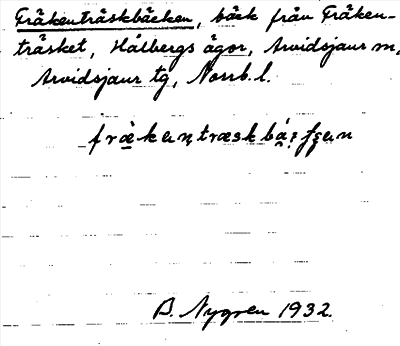 Fräkenträskbäcken, bäck från Fräken-
träsket, Hålbergs ägor, Arvidsjaur sn,
Arvidsjaur tg, Norrb. l.
B. Nygren 1932.